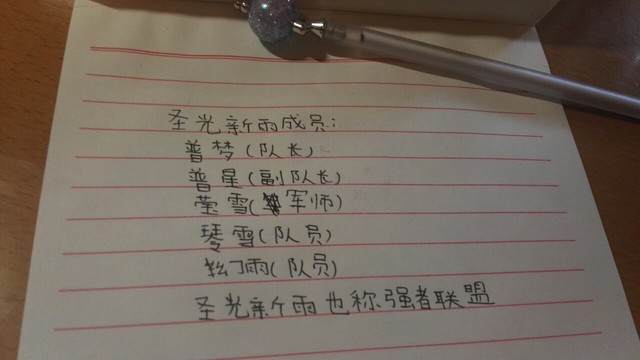 圣光新雨成员:
普梦(队长)
普星(副队长)
莹雪(军师)
琴雪(队员)
幻雨(队员)
圣光新雨也称强者联盟